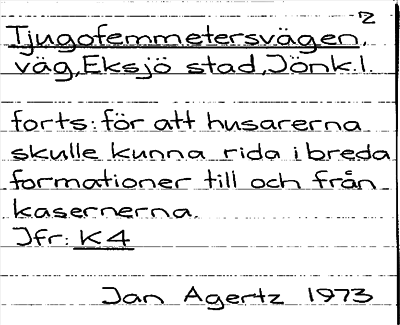 2
Tjugofemmetersvägen,
väg, Eksjö stad, Jönk.l.
forts: för att husarerna
skulle kunna rida i breda
formationer till och från
kasernerna.
Jfr: K4
Jan Agertz 1973